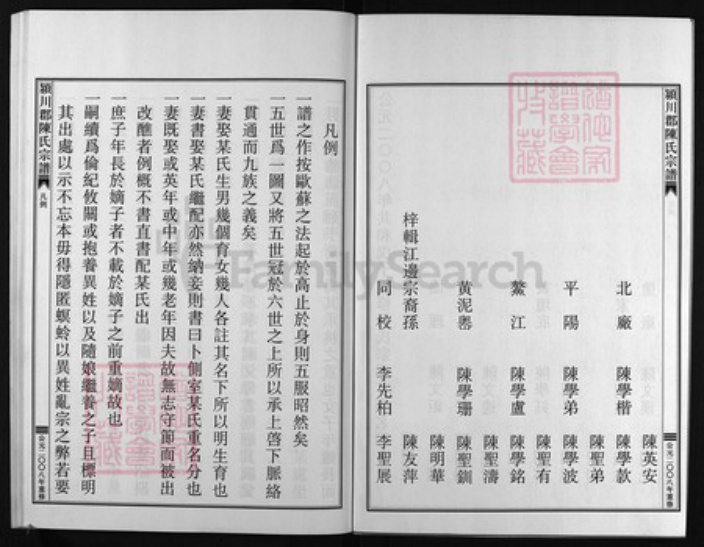 陳英安
北廠　陳學楷　陳學款
陳聖弟
平陽　陳學弟　陳學波
陳聖有
鰲江　陳學盧　陳學銘
陳聖濤
黃泥嶴　陳學珊　陳聖釧
陳明華
梓輯江邊宗裔孫　陳友萍
同校　李先柏　李聖展
潁川郡陳氏宗譜
公元二〇〇八年重修
凡例
一譜之作按歐蘇之法起於高止於身則五服昭然矣
一五世爲一圖又將五世冠於六世之上所以承上啓下脈絡
貫通而九族之義矣
一妻娶某氏生男幾個育女幾人各註其名下所以明生育也
一妻書娶某氏繼配亦然納妾則書曰卜側室某氏重名分也
一妻既娶或英年或中年或幾老年因夫故無志守節而被出
改醮者例概不書直書配某氏出
一庶子年長於嫡子者不載於嫡子之前重嫡故也
一嗣續爲倫紀攸關或抱養異姓以及隨娘繼養之子且標明
其出處以示不忘本毋得隱匿螟蛉以異姓亂宗之弊若要
潁川郡陳氏宗譜
凡例
公元二〇〇八年重修
FamilySearch